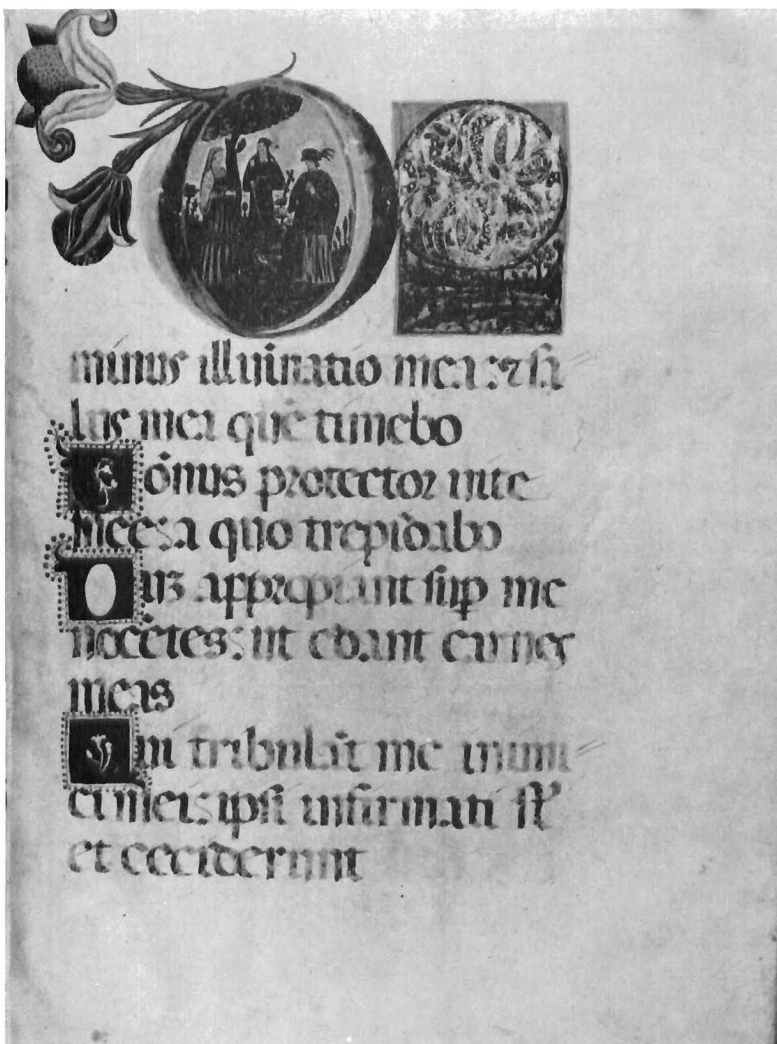 DO
minus illuinatio mea: ⁊ sa
lus mea quē timebo
Dōnus protector uite
mee: a quo trepidabo
Dum appropiant sup me
nocētes: ut edant carnes
meas
Qui tribulāt me inimi
ci mei: ipsi infirmati st̄
et ceciderunt